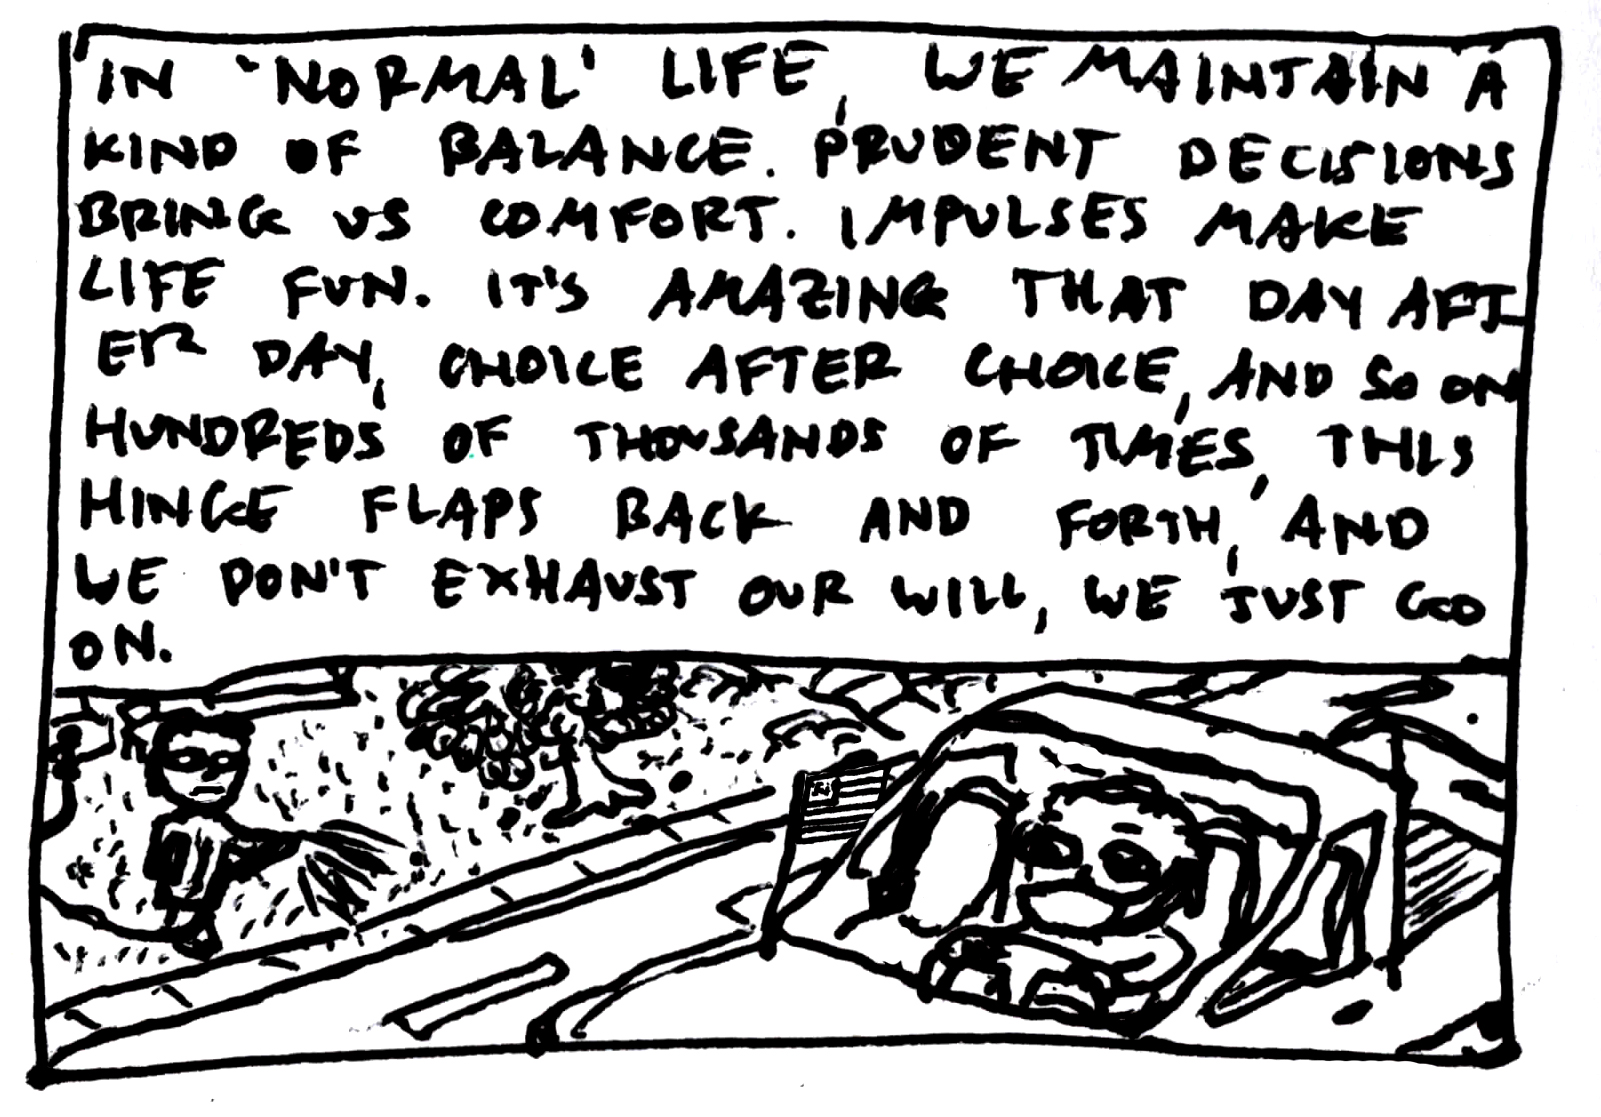 IN 'NORMAL' LIFE, WE MAINTAIN A
KIND OF BALANCE. PRUDENT DECISIONS
BRING US COMFORT. IMPULSES MAKE
LIFE FUN. IT'S AMAZING THAT DAY AFT
ER DAY, CHOICE AFTER CHOICE, AND SO ON
HUNDREDS OF THOUSANDS OF TIMES, THIS
HINGE FLAPS BACK AND FORTH, AND
WE DON'T EXHAUST OUR WILL, WE JUST GO
ON.